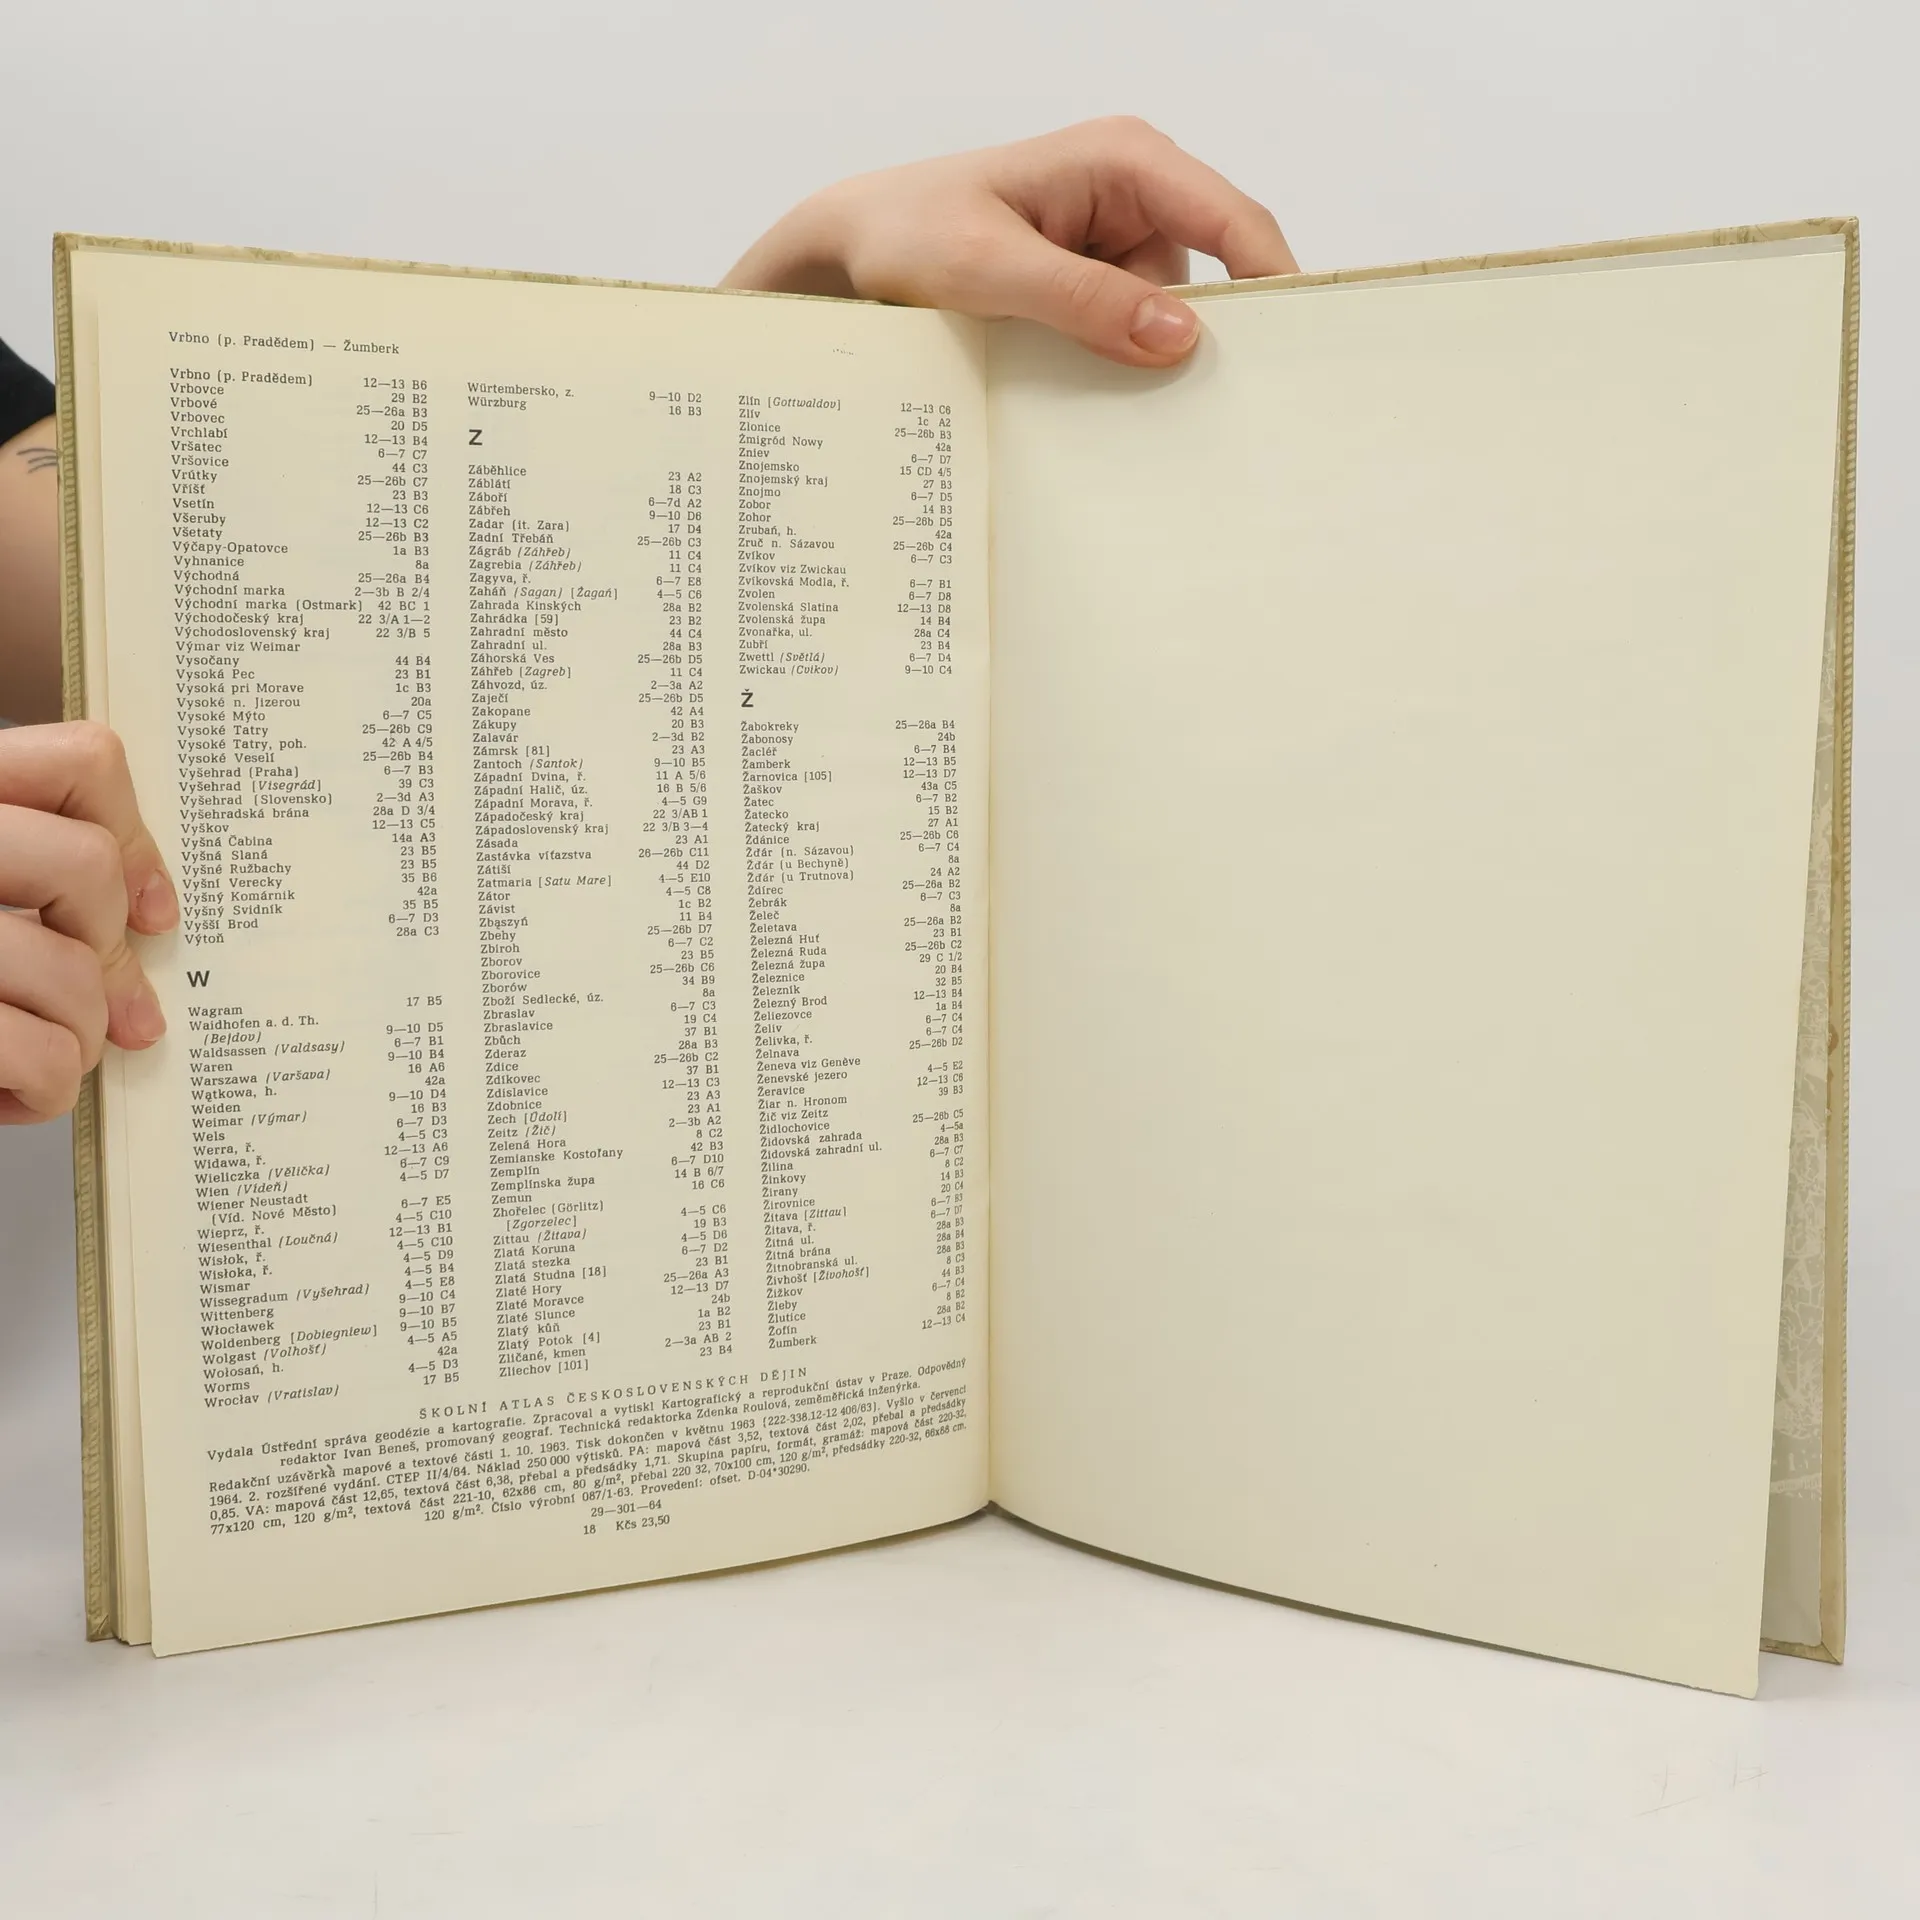 Vrbno (p. Pradědem) — Žumberk
Vrbno (p. Pradědem) 12—13 B6
Vrbovce 29 B2
Vrbové 25—26a B3
Vrbovec 20 D5
Vrchlabí 12—13 B4
Vršatec 6—7 C7
Vršovice 44 C3
Vrútky 25—26b C7
Vříšť 23 B3
Vsetín 12—13 C6
Všeruby 12—13 C2
Všetaty 25—26b B3
Výčapy-Opatovce 1a B3
Vyhnanice 8a
Východná 25—26a B4
Východní marka 2—3b B 2/4
Východní marka (Ostmark) 42 BC 1
Východočeský kraj 22 3/A 1—2
Východoslovenský kraj 22 3/B 5
Výmar viz Weimar
Vysočany 44 B4
Vysoká Pec 23 B1
Vysoká pri Morave 1c B3
Vysoké n. Jizerou 20a
Vysoké Mýto 6—7 C5
Vysoké Tatry 25—26b C9
Vysoké Tatry, poh. 42 A 4/5
Vysoké Veselí 25—26b B4
Vyšehrad (Praha) 6—7 B3
Vyšehrad [Visegrád] 39 C3
Vyšehrad (Slovensko) 2—3d A3
Vyšehradská brána 28a D 3/4
Vyškov 12—13 C5
Vyšná Čabina 14a A3
Vyšná Slaná 23 B5
Vyšné Ružbachy 23 B5
Vyšní Verecky 35 B6
Vyšný Komárnik 42a
Vyšný Svidník 35 B5
Vyšší Brod 6—7 D3
Výtoň 28a C3
W
Wagram 17 B5
Waidhofen a. d. Th.
(Bejdov) 9—10 D5
Waldsassen (Valdsasy) 6—7 B1
Waren 9—10 B4
Warszawa (Varšava) 16 A6
Wątkowa, h. 42a
Weiden 9—10 D4
Weimar (Výmar) 16 B3
Wels 6—7 D3
Werra, ř. 4—5 C3
Widawa, ř. 12—13 A6
Wieliczka (Vělička) 6—7 C9
Wien (Vídeň) 4—5 D7
Wiener Neustadt
(Víd. Nové Město) 6—7 E5
Wieprz, ř. 4—5 C10
Wiesenthal (Loučná) 12—13 B1
Wisłok, ř. 4—5 C10
Wisłoka, ř. 4—5 D9
Wismar 4—5 B4
Wissegradum (Vyšehrad) 4—5 E8
Wittenberg 9—10 C4
Włocławek 9—10 B7
Woldenberg [Dobiegniew] 9—10 B5
Wolgast (Volhošť) 4—5 A5
Wołosań, h. 42a
Worms 4—5 D3
Wrocław (Vratislav) 17 B5
Würtembersko, z. 9—10 D2
Würzburg 16 B3
Z
Záběhlice 23 A2
Záblatí 18 C3
Záboří 6—7d A2
Zábřeh 9—10 D6
Zadar (it. Zara) 17 D4
Zadní Třebáň 25—26b C3
Zágráb (Záhřeb) 11 C4
Zagrebia (Záhřeb) 11 C4
Zagyva, ř. 6—7 E8
Zaháň (Sagan) [Żagań] 4—5 C6
Zahrada Kinských 28a B2
Zahrádka [59] 23 B2
Zahradní město 44 C4
Zahradní ul. 28a B3
Záhorská Ves 25—26b D5
Záhřeb [Zagreb] 11 C4
Záhvozd, úz. 2—3a A2
Zaječí 25—26b D5
Zakopane 42 A4
Zákupy 20 B3
Zalavár 2—3d B2
Zámrsk [81] 23 A3
Zantoch (Santok) 9—10 B5
Západní Dvina, ř. 11 A 5/6
Západní Halič, úz. 16 B 5/6
Západní Morava, ř. 4—5 G9
Západočeský kraj 22 3/AB 1
Západoslovenský kraj 22 3/B 3—4
Zásada 23 A1
Zastávka víťazstva 26—26b C11
Zátiší 44 D2
Zatmaria [Satu Mare] 4—5 E10
Zátor 4—5 C8
Závist 1c B2
Zbąszyń 11 B4
Zbehy 25—26b D7
Zbiroh 6—7 C2
Zborov 23 B5
Zborovice 25—26b C6
Zborów 34 B9
Zboží Sedlecké, úz. 8a
Zbraslav 6—7 C3
Zbraslavice 19 C4
Zbůch 37 B1
Zderaz 28a B3
Zdice 25—26b C2
Zdíkovec 37 B1
Zdislavice 12—13 C3
Zdobnice 23 A3
Zech [Údolí] 23 A1
Zeitz (Žič) 2—3b A2
Zelená Hora 8 C2
Zemianske Kostoľany 42 B3
Zemplín 6—7 D10
Zemplínska župa 14 B 6/7
Zemun 16 C6
Zhořelec (Görlitz)
[Zgorzelec] 4—5 C6
Zittau (Žitava) 19 B3
Zlatá Koruna 4—5 D6
Zlatá stezka 6—7 D2
Zlatá Studna [18] 23 B1
Zlaté Hory 25—26a A3
Zlaté Moravce 12—13 D7
Zlaté Slunce 24b
Zlatý kůň 1a B2
Zlatý Potok [4] 23 B1
Zličané, kmen 2—3a AB 2
Zliechov [101] 23 B4
Zlín [Gottwaldov] 12—13 C6
Zlív 1c A2
Zlonice 25—26b B3
Żmigród Nowy 42a
Zniev 6—7 D7
Znojemsko 15 CD 4/5
Znojemský kraj 27 B3
Znojmo 6—7 D5
Zobor 14 B3
Zohor 25—26b D5
Zrubań, h. 42a
Zruč n. Sázavou 25—26b C4
Zvíkov 6—7 C3
Zvíkov viz Zwickau
Zvíkovská Modla, ř. 6—7 B1
Zvolen 6—7 D8
Zvolenská Slatina 12—13 D8
Zvolenská župa 14 B4
Zvonařka, ul. 28a C4
Zubří 23 B4
Zwettl (Světlá) 6—7 D4
Zwickau (Cvikov) 9—10 C4
Ž
Žabokreky 25—26a B4
Žabonosy 24b
Žacléř 6—7 B4
Žamberk 12—13 B5
Žarnovica [105] 12—13 D7
Žaškov 43a C5
Žatec 6—7 B2
Žatecko 15 B2
Žatecký kraj 27 A1
Ždánice 25—26b C6
Žďár (n. Sázavou) 6—7 C4
Žďár (u Bechyně) 8a
Žďár (u Trutnova) 24 A2
Ždírec 25—26a B2
Žebrák 6—7 C3
Želeč 8a
Želetava 25—26a B2
Železná Huť 23 B1
Železná Ruda 25—26b C2
Železná župa 29 C 1/2
Železnice 20 B4
Železník 32 B5
Železný Brod 12—13 B4
Želiezovce 1a B4
Želiv 6—7 C4
Želivka, ř. 6—7 C4
Želnava 25—26b D2
Ženeva viz Genève
Ženevské jezero 4—5 E2
Žeravice 12—13 C6
Žiar n. Hronom 39 B3
Žič viz Zeitz
Židlochovice 25—26b C5
Židovská zahrada 4—5a
Židovská zahradní ul. 28a B3
Žilina 6—7 C7
Žinkovy 8 C2
Žirany 14 B3
Žirovnice 20 C4
Žitava [Zittau] 6—7 B3
Žitava, ř. 6—7 D7
Žitná ul. 28a B3
Žitná brána 28a B4
Žitnobranská ul. 28a B3
Živhošť [Živohošť] 8 C3
Žižkov 44 B3
Žleby 6—7 C4
Žlutice 8 B2
Žofín 28a B2
Žumberk 12—13 C4
ŠKOLNÍ ATLAS ČESKOSLOVENSKÝCH DĚJIN
Vydala Ústřední správa geodézie a kartografie. Zpracoval a vytiskl Kartografický a reprodukční ústav v Praze. Odpovědný
redaktor Ivan Beneš, promovaný geograf. Technická redaktorka Zdenka Roulová, zeměměřická inženýrka.
Redakční uzávěrka mapové a textové části 1. 10. 1963. Tisk dokončen v květnu 1963 (222-338,12-12 406/63). Vyšlo v červenci
1964. 2. rozšířené vydání. CTEP II/4/64. Náklad 250 000 výtisků. PA: mapová část 3,52, textová část 2,02, přebal a předsádky
0,85. VA: mapová část 12,65, textová část 6,38, přebal a předsádky 1,71. Skupina papíru, formát, gramáž: mapová část 220-32,
77x120 cm, 120 g/m², textová část 221-10, 62x86 cm, 80 g/m², přebal 220 32, 70x100 cm, 120 g/m², předsádky 220-32, 66x88 cm,
120 g/m². Číslo výrobní 087/1-63. Provedení: ofset. D-04*30290.
29—301—64
18 Kčs 23,50